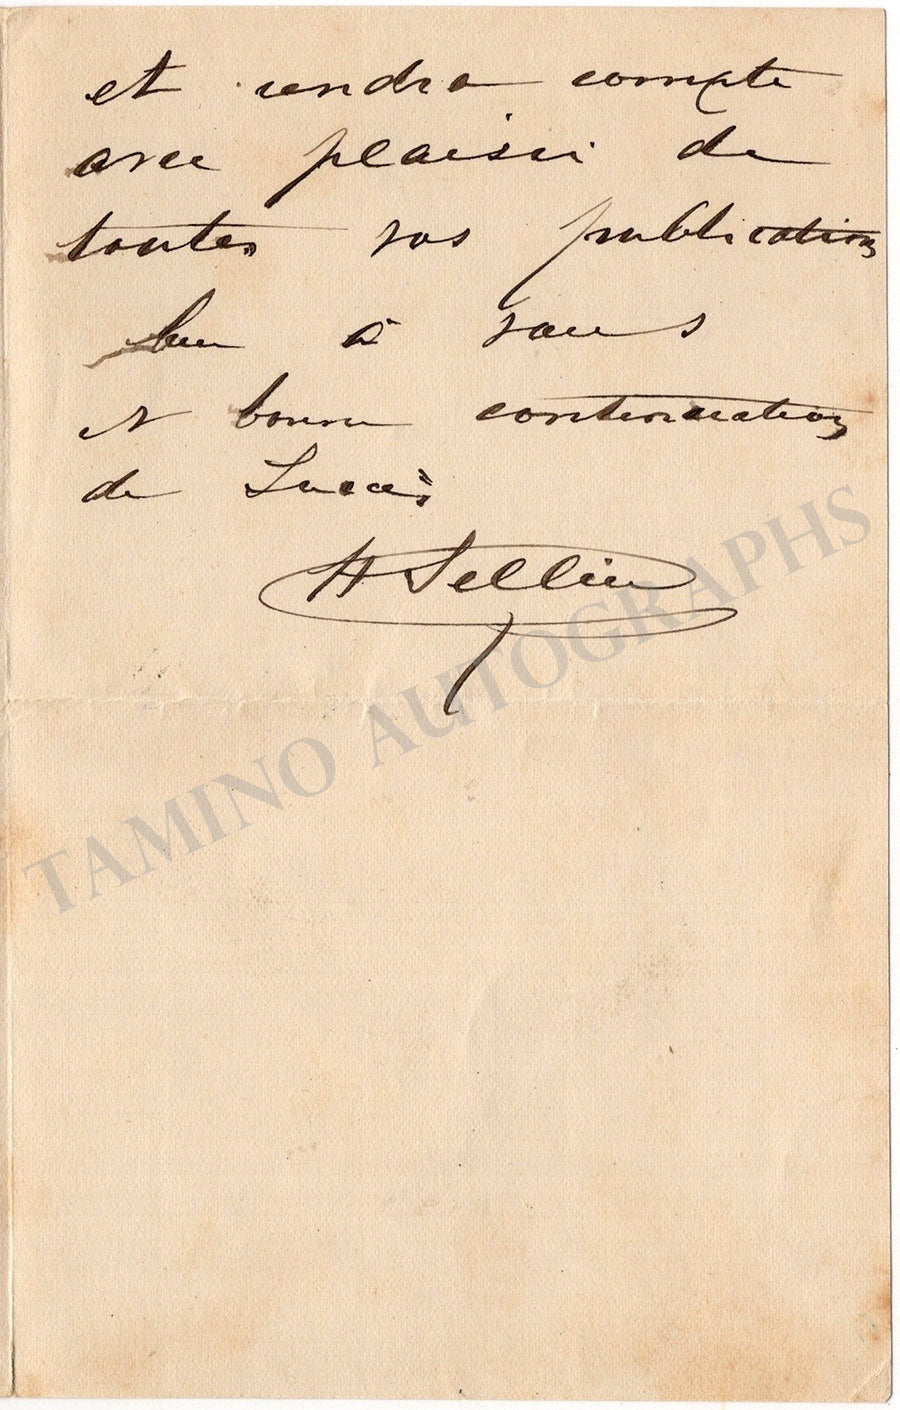 et rendra compte
avec plaisir de
toutes vos publications
bien à vous
et bonne continuation
de Succès
H Sellier
TAMINO AUTOGRAPHS